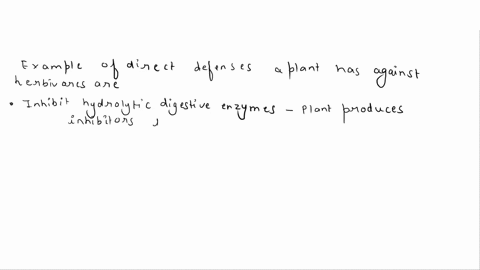 Example of direct defenses a plant has against
herbivares are
• Inhibit hydrolytic digestive enzymes – Plant produces
inhibitors ,